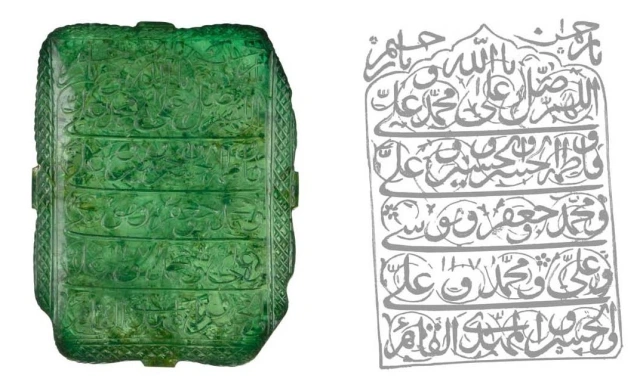 يا رحمن يا الله يا رحيم
اللهم صل على محمد و علي
و فاطمة والحسن والحسين و علي
و محمد و جعفر و موسى
و علي و محمد و علي
والحسن و المهدي القائم